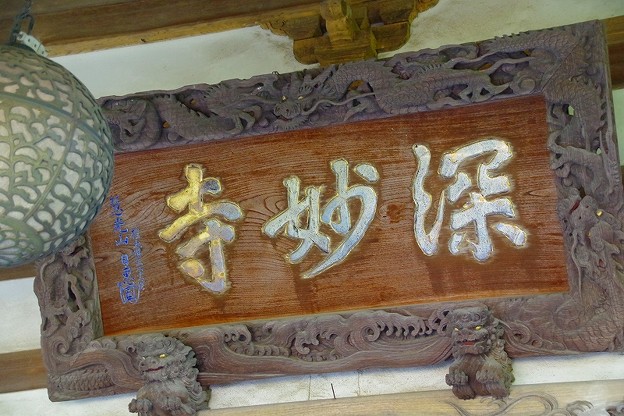 深妙寺